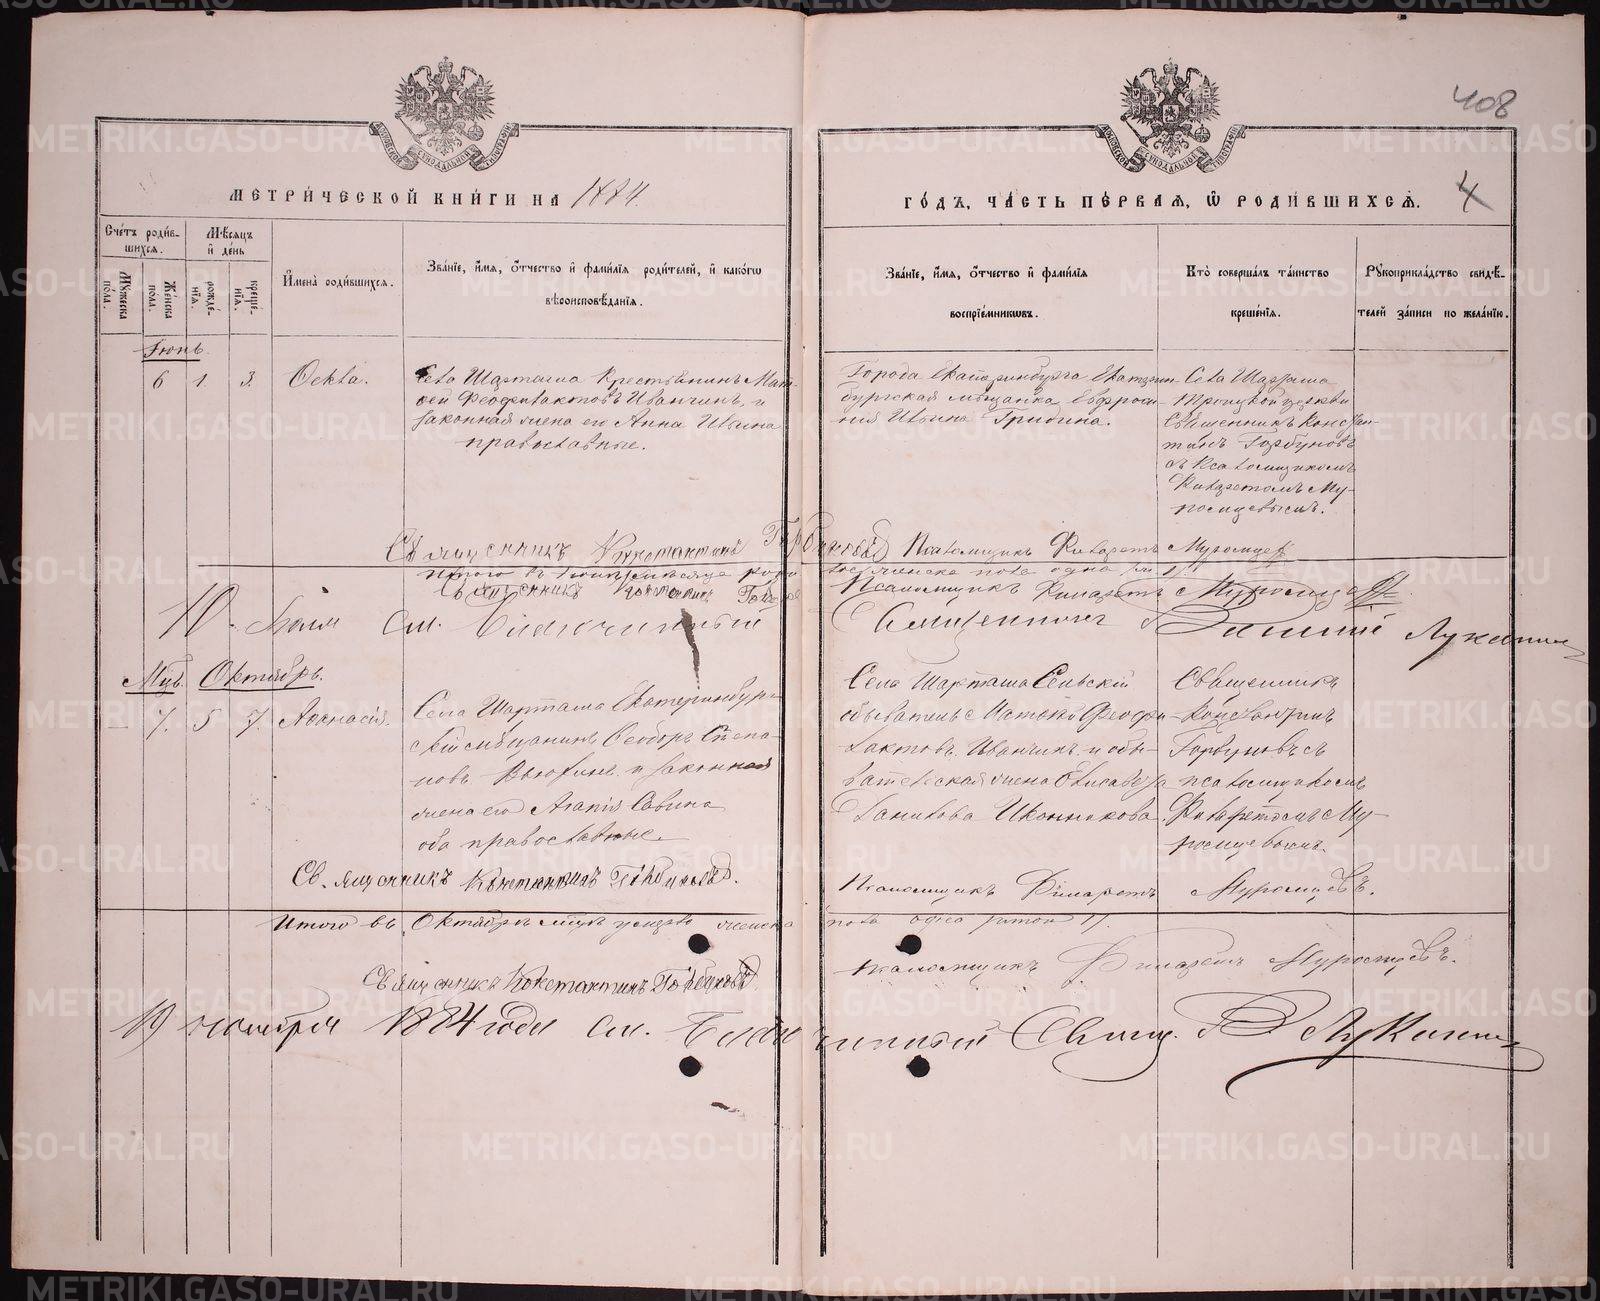 408
МЕТРИ́ЧЕСКОЙ КНИ́ГИ НА 1884.
ГО́ДЪ, ЧА́СТЬ ПЕ́РВАЯ, Ѡ РОДИ́ВШИХСѦ.
4
Сче́тъ роди́в-
шихся.
Мѣ́сяцъ
и҆ де́нь
Мꙋжеска по́ла.
Же́нска по́ла.
рожде́-
нїя.
креще́-
нїя.
И҆мена̀ роди́вшихся.
Зва́нїе, и҆́мя, ѻ҆́тчество и҆ фами́лїя роди́телей, и҆ како́гѡ
вѣроисповѣ́данїя.
Зва́нїе, и҆́мя, ѻ҆́тчество и҆ фами́лїя
воспрїе́мникѡвъ.
Кто̀ соверша́лъ та́инство
креще́нїя.
Рꙋкоприкла́дство свидѣ́-
телей за́писи по жела́нїю.
Іюнь
6 1 3. Ѳекла.
Села Шарташа Крестьянинъ Мат-
ѳей Ѳеофилактовъ Иванчинъ, и
законная жена его Анна Ивана
православные.
Города Екатеринбурга Екатерин-
бургская мѣщанка Евфроси-
нія Грибина.
Села Шарташа
Троицкой церкви
Священникъ Констан-
тинъ Горбуновъ
съ Псаломщикомъ
Филаретомъ Му-
ромцевымъ.
Священникъ Константинъ Горбуновъ Псаломщикъ Филаретъ Муромцевъ
Итого въ Іюнѣ мѣсяцѣ
женска пола одна
Священникъ Константинъ
Псаломщикъ Филаретъ Муромцевъ
10 Іюля см. Благочинный Священникъ Василій Луканинъ
Октябрь.
7. 5 7. Аѳанасія.
Села Шарташа Екатеринбург-
скій мѣщанинъ Ѳеодоръ Степа-
новъ и законная
жена его Агапія Савина
оба православные.
Села Шарташа Сельскій
обыватель Матѳей Ѳеофи-
лактовъ Иванчинъ и обы-
вательская жена Елисавета
Данилова Иконникова.
Священникъ
Константинъ
Горбуновъ съ
псаломщикомъ
Филаретомъ Му-
ромцевымъ.
Священникъ Константинъ Горбуновъ. Псаломщикъ Филаретъ Муромцевъ.
Итого въ Октябрѣ женска пола одна
Священникъ Константинъ Горбуновъ Псаломщикъ Филаретъ Муромцевъ.
19 ноября 1884 года см. Благочинный Свящ. В Луканинъ
METRIKI.GASO-URAL.RU